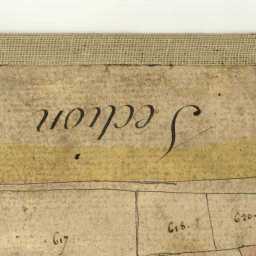 Section
617
618.
620.